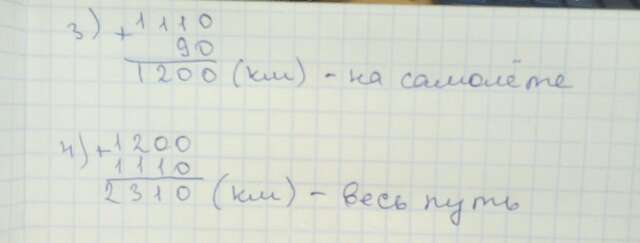 3) + 1110
90
1200 (км) - на самолёте
4) + 1200
1110
2310 (км) - весь путь